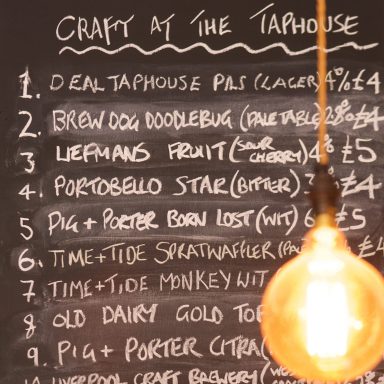 CRAFT AT THE TAPHOUSE
1. DEAL TAPHOUSE PILS (LAGER) 4% £4
2. BREWDOG DOODLEBUG (PALE TABLE) 2.8% £4
3 LIEFMANS FRUIT (SOUR CHERRY) 4% £5
4. PORTOBELLO STAR (BITTER) £4
5 PIG + PORTER BORN LOST (WIT) 6 £5
6. TIME+TIDE SPRATWAFFLER (PALE £4
7 TIME+TIDE MONKEY WIT
8 OLD DAIRY GOLD TOP
9. PIG + PORTER CITRA (
LIVERPOOL CRAFT BREWERY